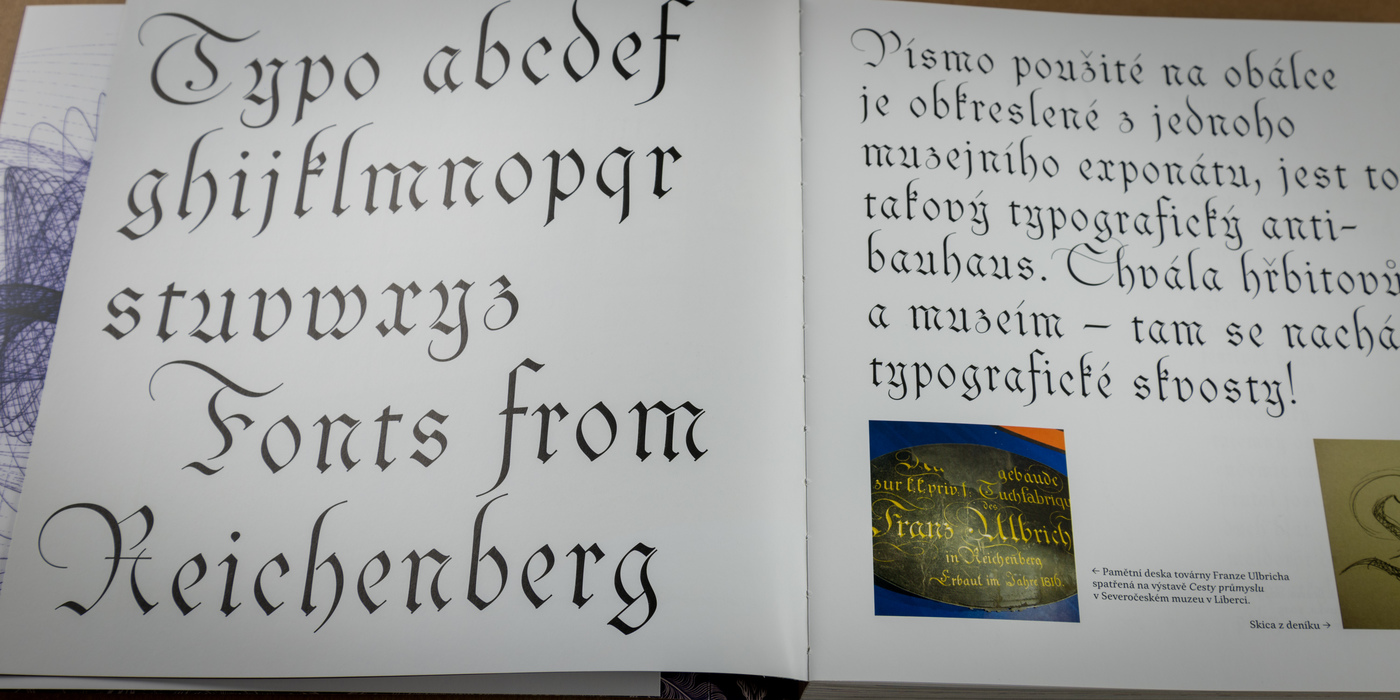 Typo abcdef
ghijklmnopqr
stuvwxyz
Fonts from
Reichenberg
Písmo použité na obálce
je obkreslené z jednoho
muzejního exponátu, jest to
takový typografický anti-
bauhaus. Chvála hřbitovů
a muzeím – tam se nachá
typografické skvosty!
gebaude
zur k.k. priv. f. Tuchfabriqu
des
Franz Ulbrich
in Reichenberg
Erbaut im Jahre 1816.
← Pamětní deska továrny Franze Ulbricha
spatřená na výstavě Cesty průmyslu
v Severočeském muzeu v Liberci.
Skica z deníku →